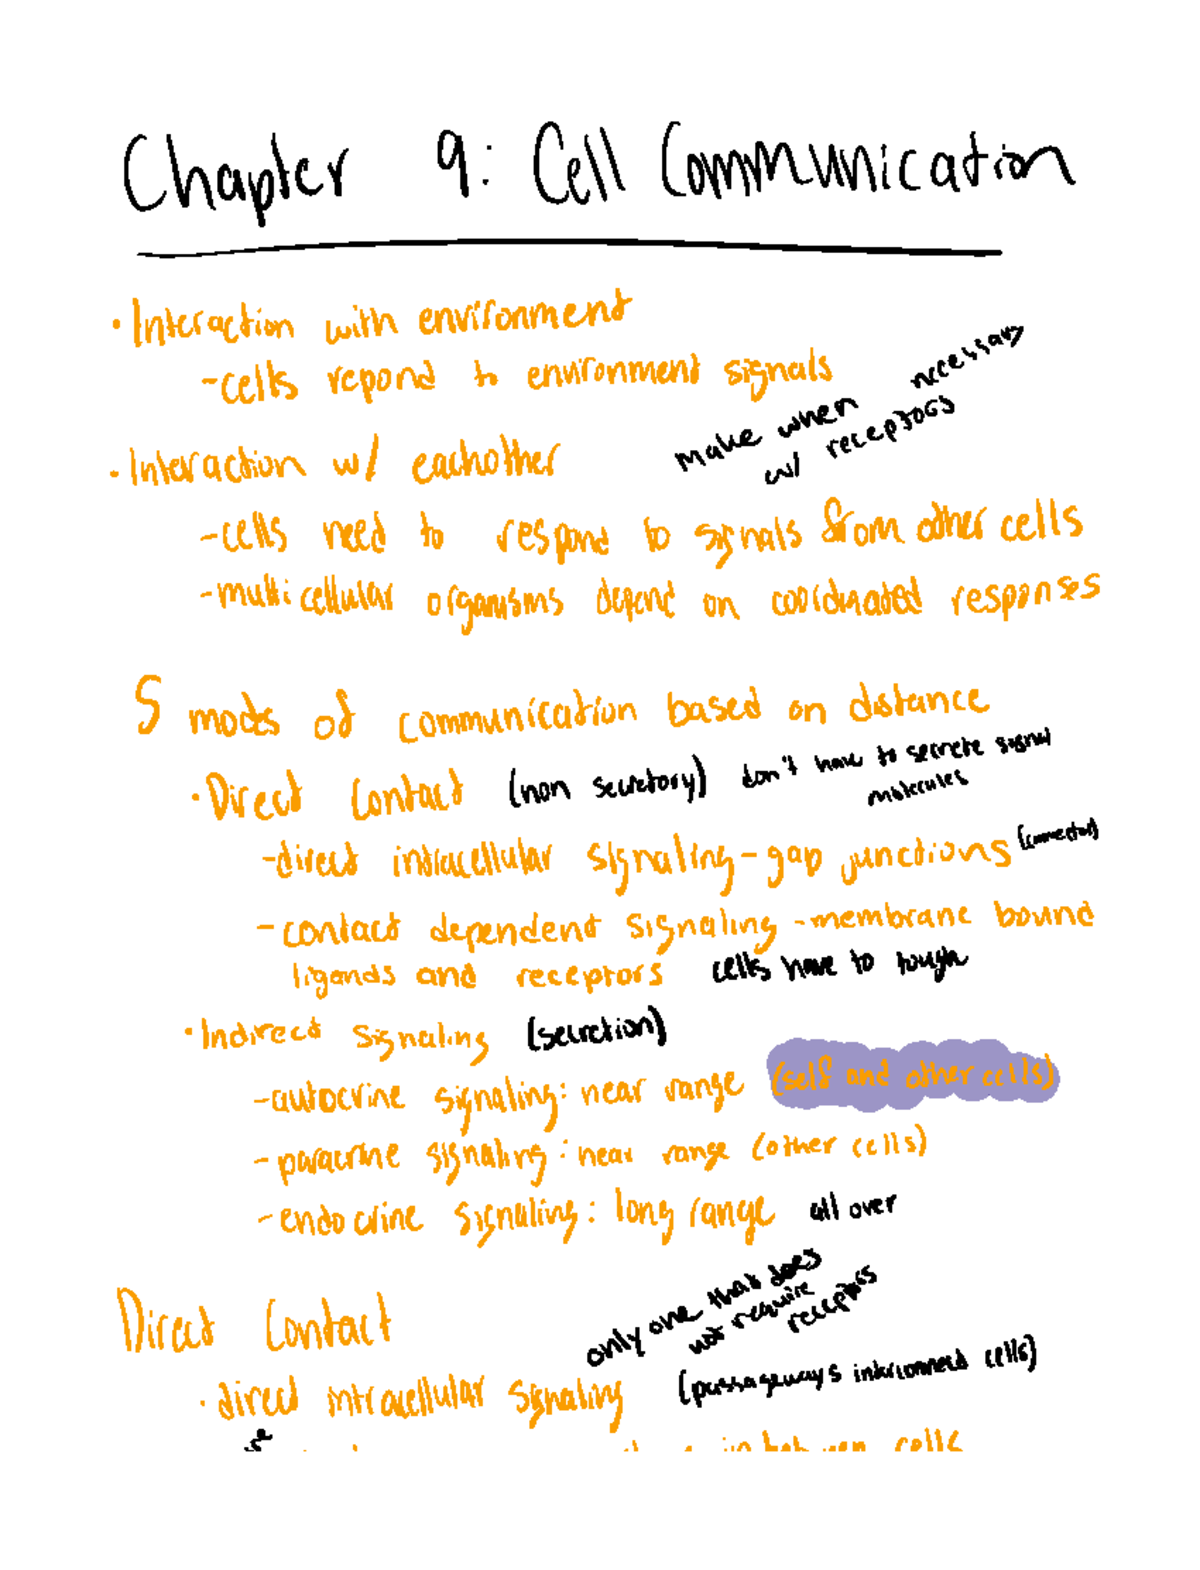 Chapter 9: Cell Communication
• Interaction with environment
- cells repond to environment signals
• Interaction w/ eachother
make when neccessary
w/ receptors
- cells need to respond to signals from other cells
- multicellular organisms depend on coordinated responses
5 modes of communication based on distance
• Direct Contact (non secretory) don't have to secrete signal
molecules
- direct intracellular signaling - gap junctions (connector)
- contact dependent signaling - membrane bound
ligands and receptors cells have to tough
• Indirect signaling (secretion)
- autocrine signaling: near range (self and other cells)
- paracrine signaling: near range (other cells)
- endocrine signaling: long range all over
Direct Contact
only one that does
not require
receptors
• direct intracellular signaling (passageways interconnect cells)
in between cells